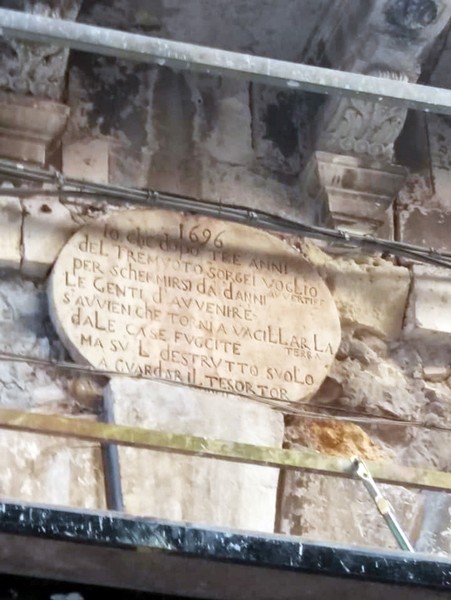 1696
Io che dopo TRE ANNI
DEL TREMVOTO SORGEI VOGLIO
PER SCHERMIRSI DA DANNI AVVERTIRE
LE GENTI d'AVVENIRE
S'AVVIEN CHE TORNI A VACILLAR LA TERRA
DALE CASE FUGGITE
MA SV L DESTRUTTO SVOLO
A GVARDAR IL TESOR TOR